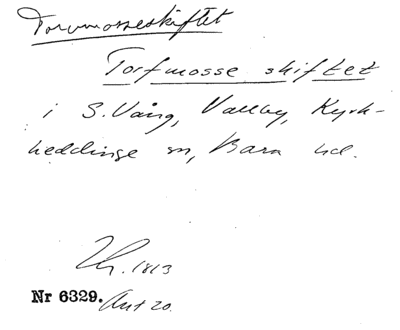 Torvmosseskiftet
Torfmosse skiftet
i S. Vång, Vallby, Kyrk-
heddinge sn, Bara hd.
1813
Nr 6329. Akt 20.